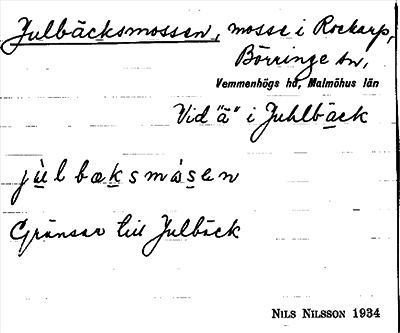 Julbäcksmossen, mosse i Rockarp,
Börringe sn,
Vemmenhögs hd, Malmöhus län
Vid "ä" i Juhlbäck
julbæksmåsen
Gränsar till Julbäck
NILS NILSSON 1934